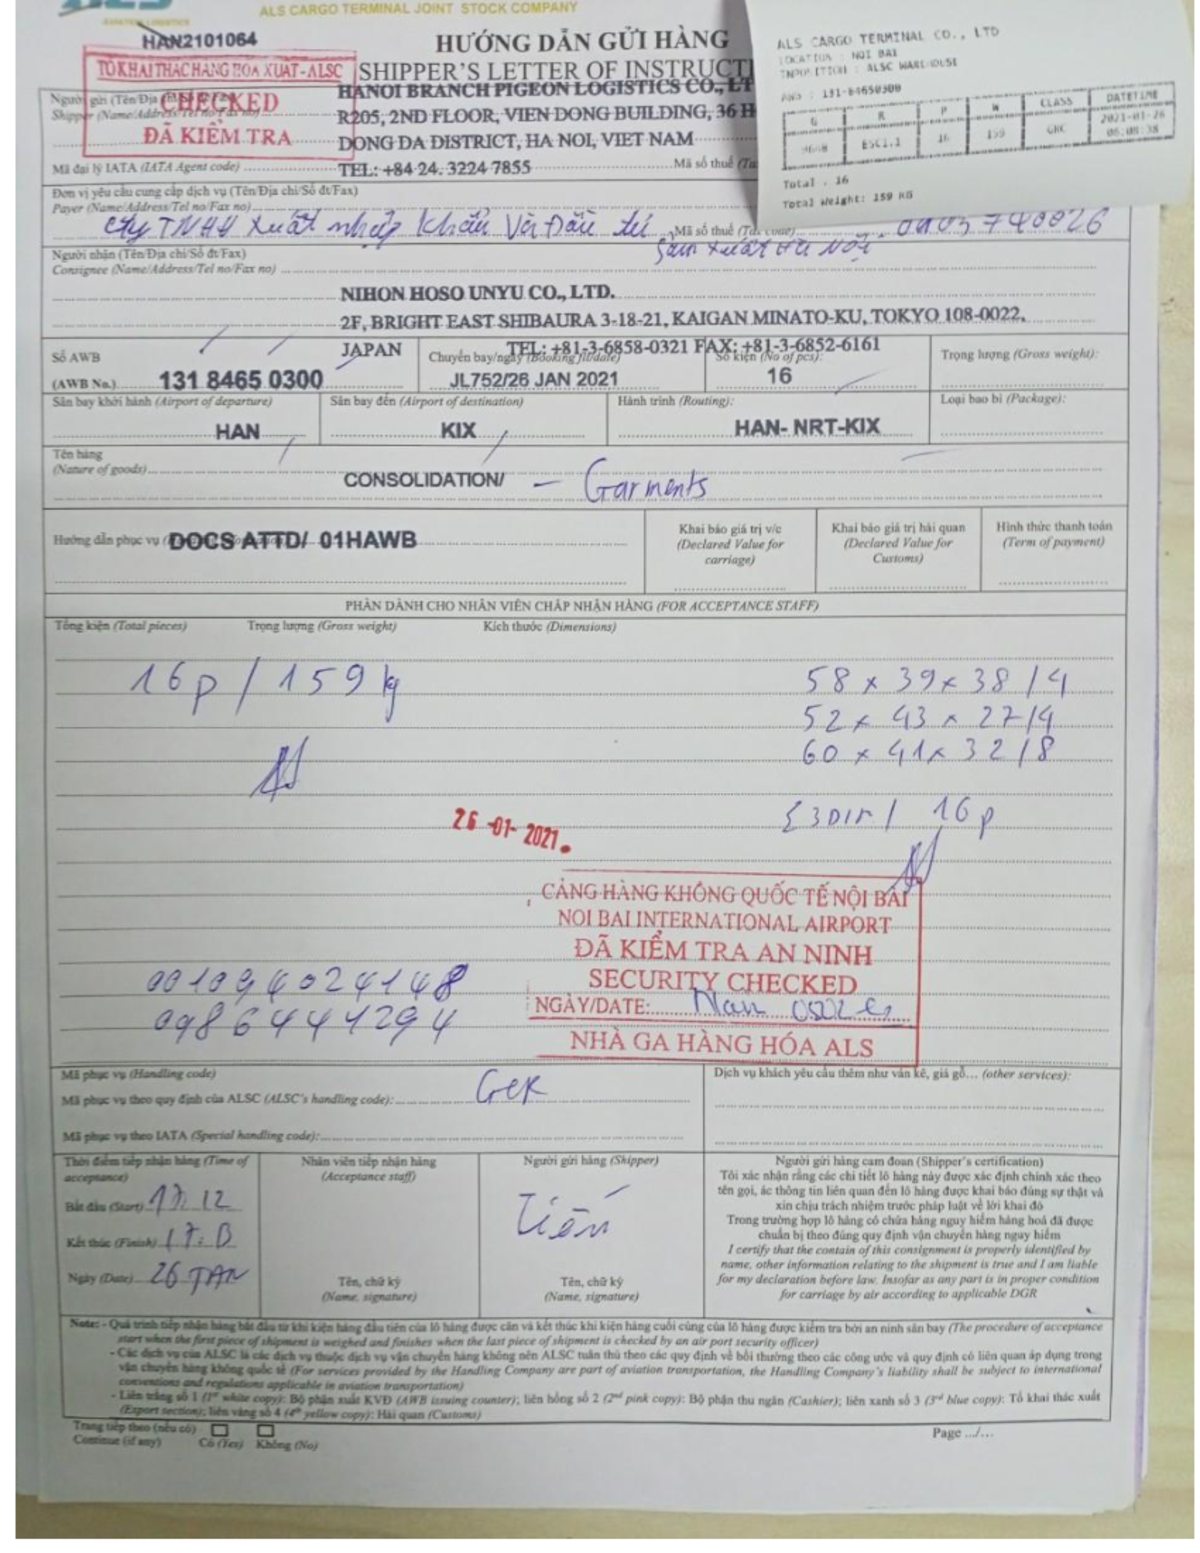 ALS CARGO TERMINAL JOINT STOCK COMPANY
HAN2101064
HƯỚNG DẪN GỬI HÀNG
TỔ KHAI THÁC HÀNG HÓA XUẤT - ALSC
CHECKED
ĐÃ KIỂM TRA
SHIPPER'S LETTER OF INSTRUCTI
ALS CARGO TERMINAL CO., LTD
LOCATION : NOI BAI
: ALSC WAREHOUSE
AWB : 131-84650300
P W CLASS DATETIME
ESC1.1 16 159 GNC 2021-01-26
Total : 16
Total Weight: 159 KG
Người gửi (Tên/Địa
Shipper (Name/Address/Tel no/Fax no)
HANOI BRANCH PIGEON LOGISTICS CO., LT
R205, 2ND FLOOR, VIEN DONG BUILDING, 36 H
DONG DA DISTRICT, HA NOI, VIET NAM
Mã đại lý IATA (IATA Agent code)
TEL: +84 24. 3224 7855
Mã số thuế (Ta
Đơn vị yêu cầu cung cấp dịch vụ (Tên/Địa chỉ/Số đt/Fax)
Payer (Name/Address/Tel no/Fax no)
Cty TNHH Xuất nhập Khẩu Và Đầu tư
Mã số thuế (Tax code)
Sản xuất Hà Nội
Người nhận (Tên/Địa chỉ/Số đt/Fax)
Consignee (Name/Address/Tel no/Fax no)
NIHON HOSO UNYU CO., LTD.
2F, BRIGHT EAST SHIBAURA 3-18-21, KAIGAN MINATO-KU, TOKYO 108-0022,
JAPAN
TEL: +81-3-6858-0321 FAX: +81-3-6852-6161
Số AWB
(AWB No.) 131 8465 0300
Chuyến bay/ngày (Booking flt/date)
JL752/26 JAN 2021
Số kiện (No of pcs):
16
Trọng lượng (Gross weight):
Sân bay khởi hành (Airport of departure)
HAN
Sân bay đến (Airport of destination)
KIX
Hành trình (Routing):
HAN- NRT-KIX
Loại bao bì (Package):
Tên hàng
(Nature of goods)
CONSOLIDATION/ - Garments
Hướng dẫn phục vụ
DOCS ATTD/ 01HAWB
Khai báo giá trị v/c
(Declared Value for
carriage)
Khai báo giá trị hải quan
(Declared Value for
Customs)
Hình thức thanh toán
(Term of payment)
PHẦN DÀNH CHO NHÂN VIÊN CHẤP NHẬN HÀNG (FOR ACCEPTANCE STAFF)
Tổng kiện (Total pieces) Trọng lượng (Gross weight) Kích thước (Dimensions)
16p / 159 kg
58 x 39 x 38 / 4
52 x 43 x 27 / 4
60 x 41 x 32 / 8
16 p
26 -01- 2021
CẢNG HÀNG KHÔNG QUỐC TẾ NỘI BÀI
NOI BAI INTERNATIONAL AIRPORT
ĐÃ KIỂM TRA AN NINH
SECURITY CHECKED
NGÀY/DATE:
NHÀ GA HÀNG HÓA ALS
001094024148
0986441294
Mã phục vụ (Handling code)
Mã phục vụ theo quy định của ALSC (ALSC's handling code):
Mã phục vụ theo IATA (Special handling code):
Dịch vụ khách yêu cầu thêm như vấn kê, giá gỗ... (other services):
Thời điểm tiếp nhận hàng (Time of
acceptance)
Bắt đầu (Start) 17.12
Kết thúc (Finish)
Ngày (Date) 26 JAN
Nhân viên tiếp nhận hàng
(Acceptance staff)
Tên, chữ ký
(Name, signature)
Người gửi hàng (Shipper)
Tiến
Tên, chữ ký
(Name, signature)
Người gửi hàng cam đoan (Shipper's certification)
Tôi xác nhận rằng các chi tiết lô hàng này được xác định chính xác theo
tên gọi, ác thông tin liên quan đến lô hàng được khai báo đúng sự thật và
xin chịu trách nhiệm trước pháp luật về lời khai đó
Trong trường hợp lô hàng có chứa hàng nguy hiểm hàng hoá đã được
chuẩn bị theo đúng quy định vận chuyển hàng nguy hiểm
I certify that the contain of this consignment is properly identified by
name, other information relating to the shipment is true and I am liable
for my declaration before law. Insofar as any part is in proper condition
for carriage by air according to applicable DGR
Note: - Quá trình tiếp nhận hàng bắt đầu từ khi kiện hàng đầu tiên của lô hàng được cân và kết thúc khi kiện hàng cuối cùng của lô hàng được kiểm tra bởi an ninh sân bay (The procedure of acceptance
start when the first piece of shipment is weighed and finishes when the last piece of shipment is checked by an air port security officer)
- Các dịch vụ của ALSC là các dịch vụ thuộc dịch vụ vận chuyển hàng không nên ALSC tuân thủ theo các quy định về bồi thường theo các công ước và quy định có liên quan áp dụng trong
vận chuyển hàng không quốc tế (For services provided by the Handling Company are part of aviation transportation, the Handling Company's liability shall be subject to international
conventions and regulations applicable in aviation transportation)
- Liên trắng số 1 (1st white copy): Bộ phận xuất KVĐ (AWB issuing counter); liên hồng số 2 (2nd pink copy): Bộ phận thu ngân (Cashier); liên xanh số 3 (3rd blue copy): Tổ khai thác xuất
(Export section); liên vàng số 4 (4th yellow copy): Hải quan (Customs)
Trang tiếp theo (nếu có)
Continue (if any) Có (Yes) Không (No)
Page .../...